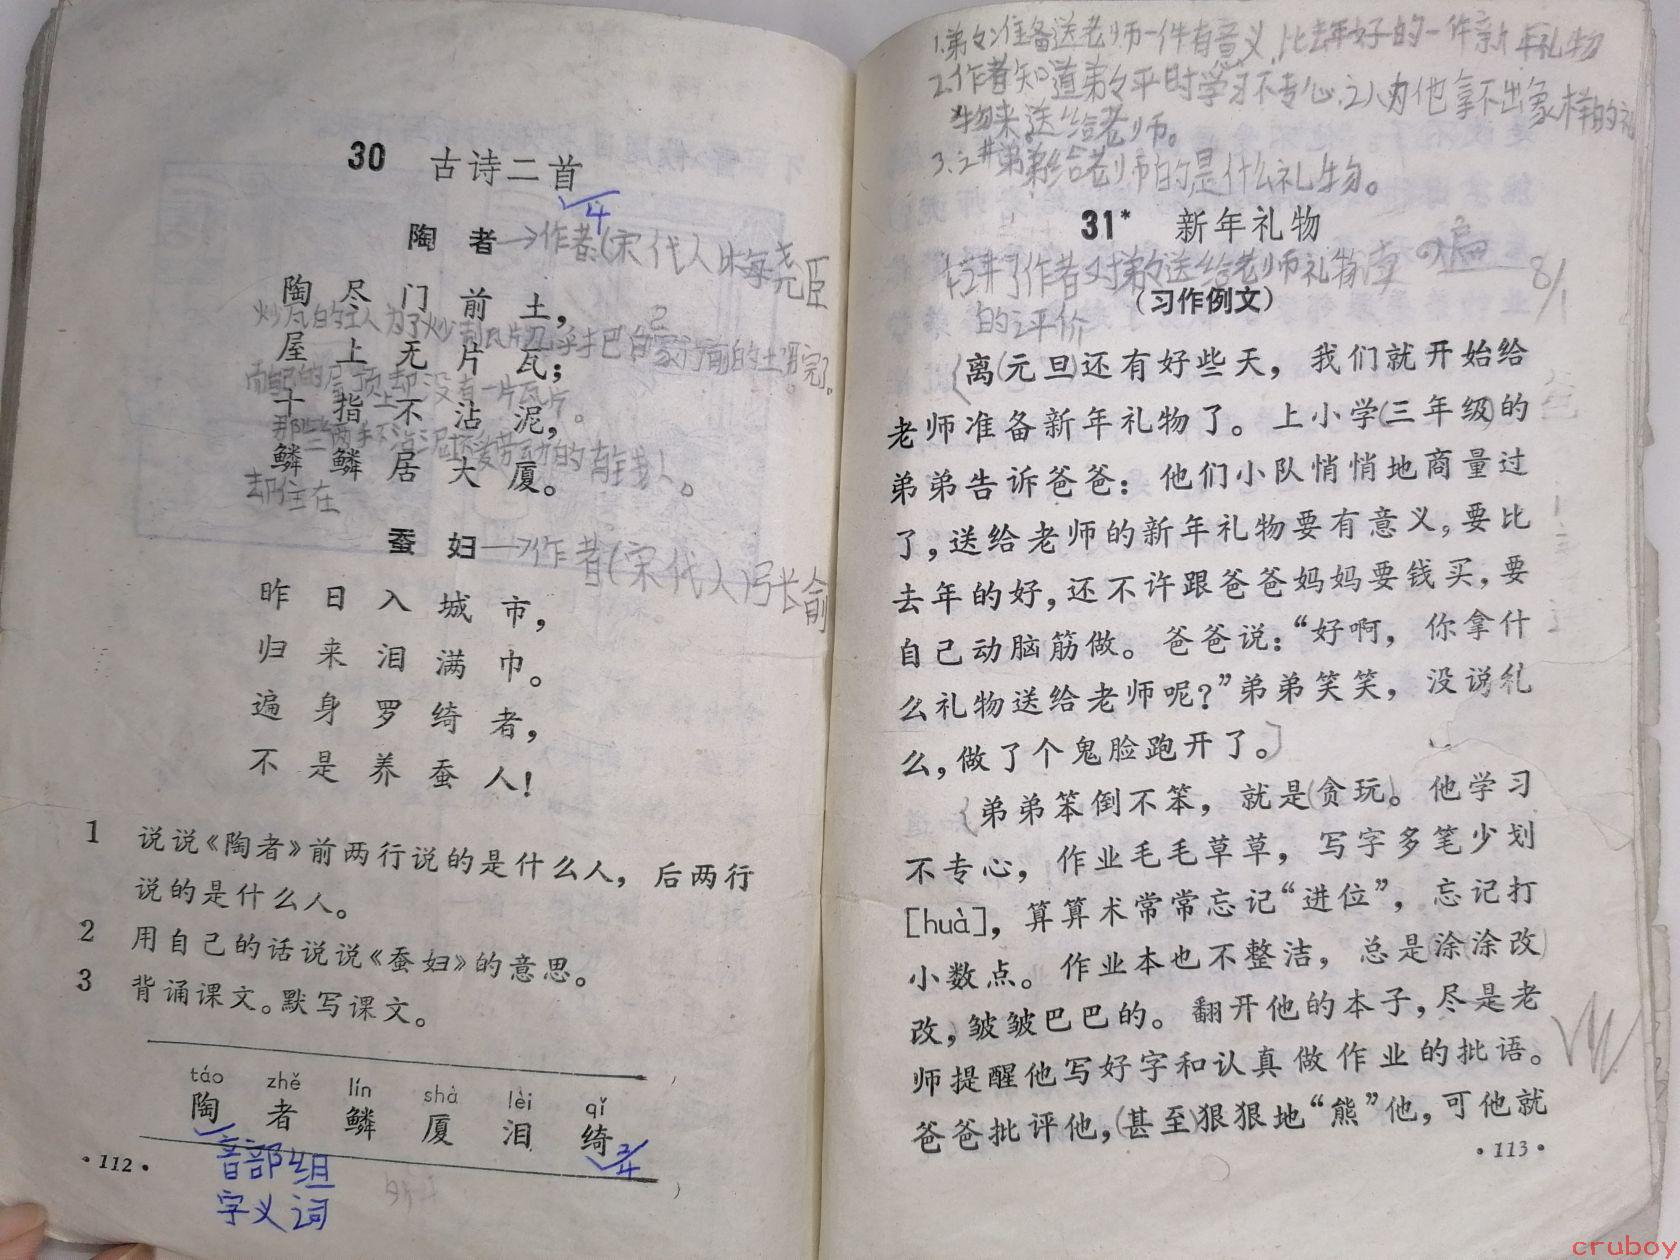 30 古诗二首
4
陶者→作者(宋代人)梅尧臣
陶尽门前土，
屋上无片瓦；
而自己的屋顶上却没有一片瓦片。
十指不沾泥，
鳞鳞居大厦。
却住在
蚕妇→作者(宋代人)张俞
昨日入城市，
归来泪满巾。
遍身罗绮者，
不是养蚕人！
1 说说《陶者》前两行说的是什么人，后两行
说的是什么人。
2 用自己的话说说《蚕妇》的意思。
3 背诵课文。默写课文。
táo zhě lín shà lèi qǐ
陶 者 鳞 厦 泪 绮
音部组
字义词
·112·
1.弟々准备送老师一件有意义，比去年好的一件新年礼物
2.作者知道弟々平时学习不专心，认为他拿不出象样的礼
物来送给老师。
3.讲弟弟给老师的是什么礼物。
31* 新年礼物
8/1
(习作例文)
的评价
离(元旦)还有好些天，我们就开始给
老师准备新年礼物了。上小学(三年级)的
弟弟告诉爸爸：他们小队悄悄地商量过
了，送给老师的新年礼物要有意义，要比
去年的好，还不许跟爸爸妈妈要钱买，要
自己动脑筋做。爸爸说：“好啊，你拿什
么礼物送给老师呢？”弟弟笑笑，没说什
么，做了个鬼脸跑开了。
弟弟笨倒不笨，就是(贪玩)。他学习
不专心，作业毛毛草草，写字多笔少划
[huà]，算算术常常忘记“进位”，忘记打
小数点。作业本也不整洁，总是(涂涂改
改)，皱皱巴巴的。翻开他的本子，尽是老
师提醒他写好字和认真做作业的批语。
爸爸批评他，(甚至)狠狠地“熊”他，可他就
·113·
cruboy